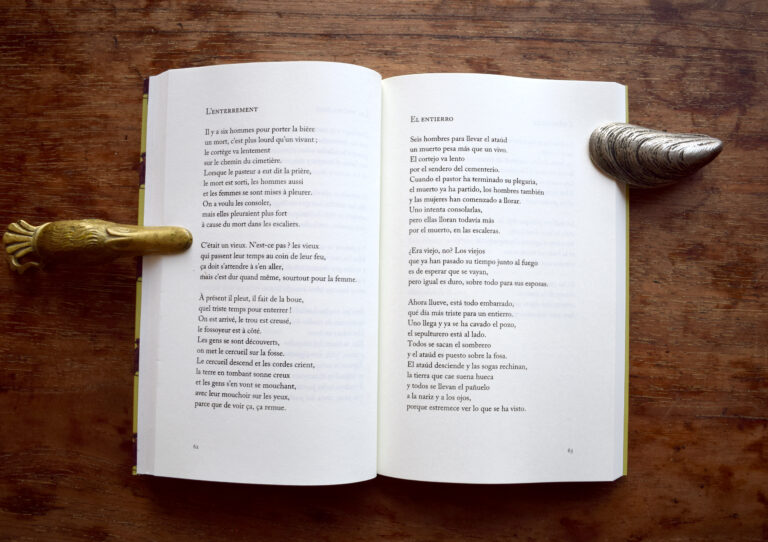 L'ENTERREMENT
Il y a six hommes pour porter la bière
un mort, c'est plus lourd qu'un vivant ;
le cortège va lentement
sur le chemin du cimetière.
Lorsque le pasteur a eut dit la prière,
le mort est sorti, les hommes aussi
et les femmes se sont mises à pleurer.
On a voulu les consoler,
mais elles pleuraient plus fort
à cause du mort dans les escaliers.
C'était un vieux. N'est-ce pas ? les vieux
qui passent leur temps au coin de leur feu,
ça doit s'attendre à s'en aller,
mais c'est dur quand même, sourtout pour la femme.
À présent il pleut, il fait de la boue,
quel triste temps pour enterrer !
On est arrivé, le trou est creusé,
le fossoyeur est à côté.
Les gens se sont découverts,
on met le cercueil sur la fosse.
Le cercueil descend et les cordes crient,
la terre en tombant sonne creux
et les gens s'en vont se mouchant,
avec leur mouchoir sur les yeux,
parce que de voir ça, ça remue.
62
EL ENTIERRO
Seis hombres para llevar el ataúd
un muerto pesa más que un vivo.
El cortejo va lento
por el sendero del cementerio.
Cuando el pastor ha terminado su plegaria,
el muerto ya ha partido, los hombres también
y las mujeres han comenzado a llorar.
Uno intenta consolarlas,
pero ellas lloran todavía más
por el muerto, en las escaleras.
¿Era viejo, no? Los viejos
que ya han pasado su tiempo junto al fuego
es de esperar que se vayan,
pero igual es duro, sobre todo para sus esposas.
Ahora llueve, está todo embarrado,
qué día más triste para un entierro.
Uno llega y ya se ha cavado el pozo,
el sepulturero está al lado.
Todos se sacan el sombrero
y el ataúd es puesto sobre la fosa.
El ataúd desciende y las sogas rechinan,
la tierra que cae suena hueca
y todos se llevan el pañuelo
a la nariz y a los ojos,
porque estremece ver lo que se ha visto.
63